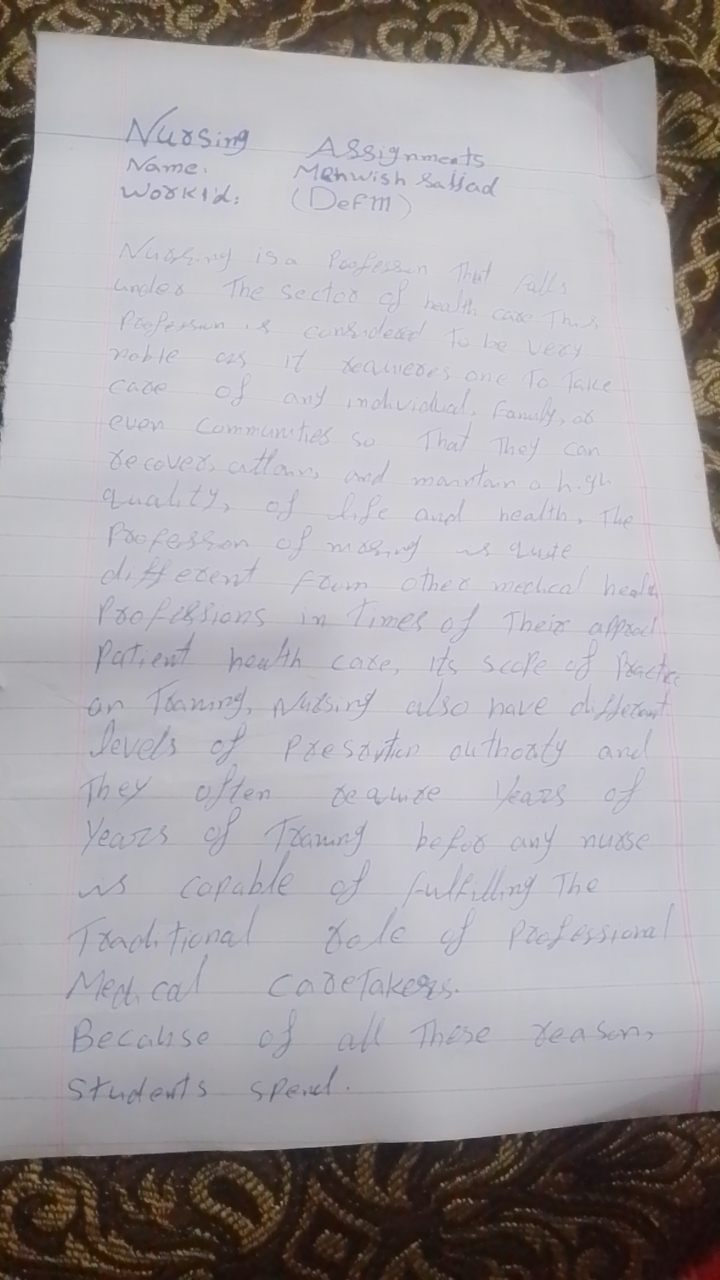 Nursing Assignments
Name. Mehwish Sajjad
Work Id: (DeFm)
Nursing is a Profession That Falls
under The sector of health care This
Profession is considered To be very
noble as it requieres one To Take
care of any individual, Family, or
even Communities so That They can
recover, attain, and maintan a high
quality, of life and health, The
Profession of nursing is quite
different From other medical health
Professions in Times of Their approd
Patient health care, its scope of Practice
an Traning, Nursing also have different
levels of Presrption authoraty and
They often require Years of
Years of Traning befor any nurse
is capable of fulfilling The
Traditional role of Professional
Medical CareTakers.
Because of all These reason,
Students spend.